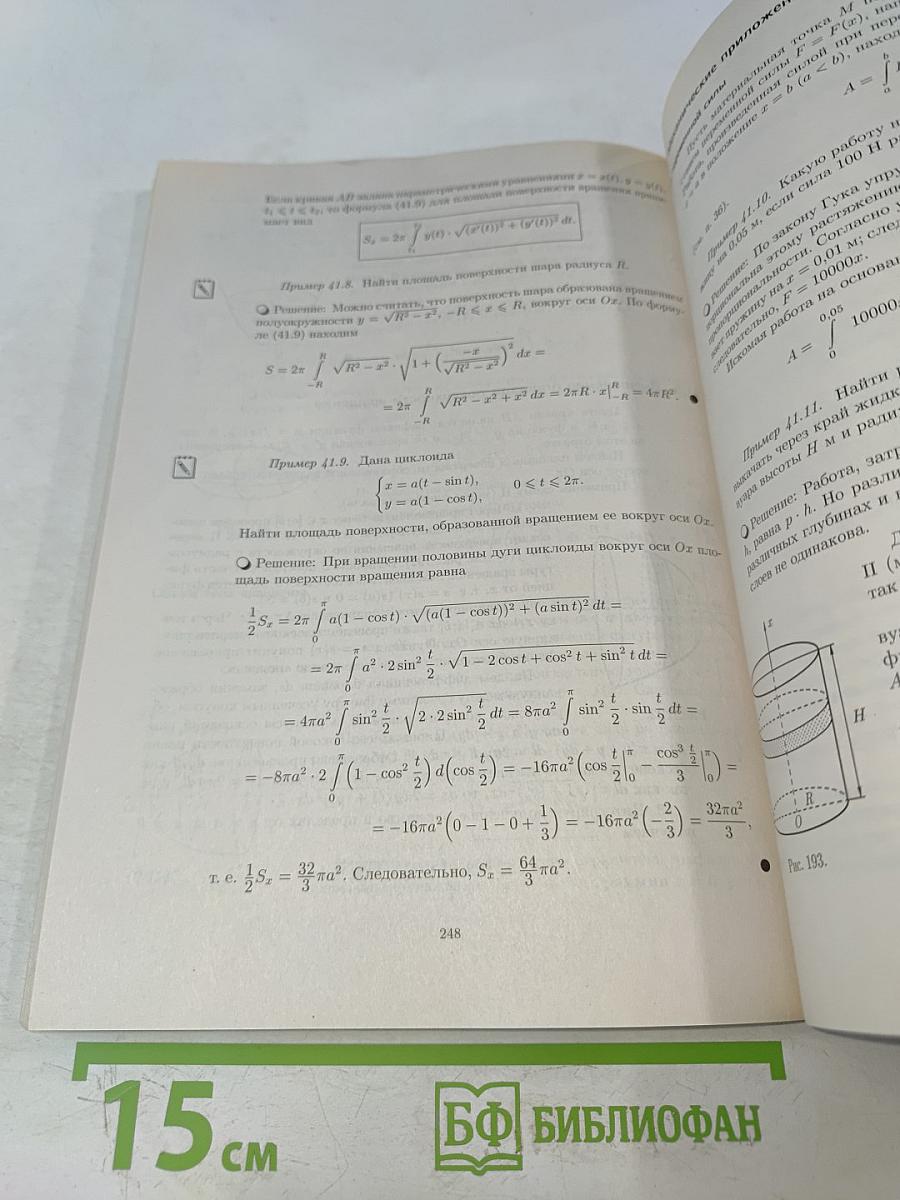 Если кривая AB задана параметрическими уравнениями x = x(t), y = y(t),
t₁ ⩽ t ⩽ t₂, то формула (41.9) для площади поверхности вращения прини-
мает вид
Sₓ = 2π ∫ y(t) · √((x′(t))² + (y′(t))²) dt.
Пример 41.8. Найти площадь поверхности шара радиуса R.
Решение: Можно считать, что поверхность шара образована вращением
полуокружности y = √(R² − x²), −R ⩽ x ⩽ R, вокруг оси Ox. По форму-
ле (41.9) находим
S = 2π ∫_{−R}^{R} √(R² − x²) · √(1 + (−x/√(R² − x²))²) dx =
= 2π ∫_{−R}^{R} √(R² − x² + x²) dx = 2πR · x|_{−R}^{R} = 4πR².
Пример 41.9. Дана циклоида
{x = a(t − sin t),
y = a(1 − cos t), 0 ⩽ t ⩽ 2π.
Найти площадь поверхности, образованной вращением ее вокруг оси Ox.
Решение: При вращении половины дуги циклоиды вокруг оси Ox пло-
щадь поверхности вращения равна
1/2 Sₓ = 2π ∫_0^π a(1 − cos t) · √((a(1 − cos t))² + (a sin t)²) dt =
= 2π ∫_0^π a² · 2 sin² t/2 · √(1 − 2 cos t + cos² t + sin² t) dt =
= 4πa² ∫_0^π sin² t/2 · √(2 · 2 sin² t/2) dt = 8πa² ∫_0^π sin² t/2 · sin t/2 dt =
= −8πa² · 2 ∫_0^π (1 − cos² t/2) d(cos t/2) = −16πa² (cos t/2|_0^π − cos³ t/2 / 3|_0^π) =
= −16πa² (0 − 1 − 0 + 1/3) = −16πa² (−2/3) = 32πa²/3,
т. е. 1/2 Sₓ = 32/3 πa². Следовательно, Sₓ = 64/3 πa².
248
приложен
переменной силы
Пусть материальная точка M
переменной силы F = F(x), нап
произведенная силой при пере
в положение x = b (a < b), наход
A = ∫_a^b
(см. п. 36).
Пример 41.10. Какую работу н
на 0,05 м, если сила 100 Н р
Решение: По закону Гука упру
этому растяжению
пропорциональности. Согласно у
пружину на x = 0,01 м; след
следовательно, F = 10000x.
Искомая работа на основан
A = ∫_0^{0,05} 10000x
Пример 41.11. Найти
выкачать через край жидк
высоты H м и ради
Решение: Работа, затр
h, равна p · h. Но разли
различных глубинах и
слоев не одинакова.
Д
П (м
так
x
H
R
0
Рис. 193.
15 см
БФ БИБЛИОФАН